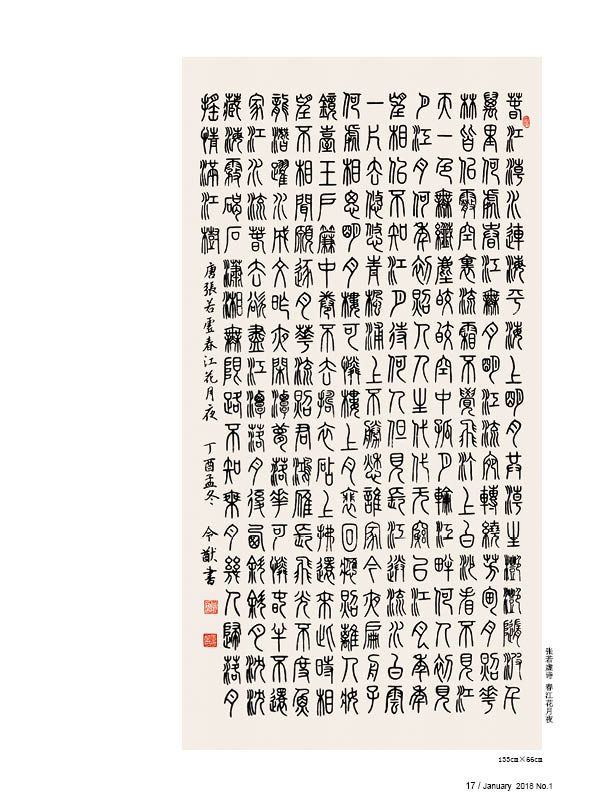 春江潮水連海平海上明月共潮生灩灩隨波千
萬里何處春江無月明江流宛轉繞芳甸月照花
林皆似霰空裏流霜不覺飛汀上白沙看不見江
天一色無纖塵皎皎空中孤月輪江畔何人初見
月江月何年初照人人生代代无窮已江月年年
望相似不知江月待何人但見長江送流水白雲
一片去悠悠青楓浦上不勝愁誰家今夜扁舟子
何處相思明月樓可憐樓上月裴回應照離人妝
鏡臺玉戶簾中卷不去擣衣砧上拂還來此時相
望不相聞願逐月華流照君鴻雁長飛光不度魚
龍潛躍水成文昨夜閑潭夢落華可憐春半不還
家江水流春去欲盡江潭落月復西斜斜月沈沈
藏海霧碣石瀟湘無限路不知乘月幾人歸落月
搖情滿江樹 唐張若虛春江花月夜 丁酉孟冬 令猷書
张若虚诗 春江花月夜
135cm×66cm
17 / January 2018 No.1